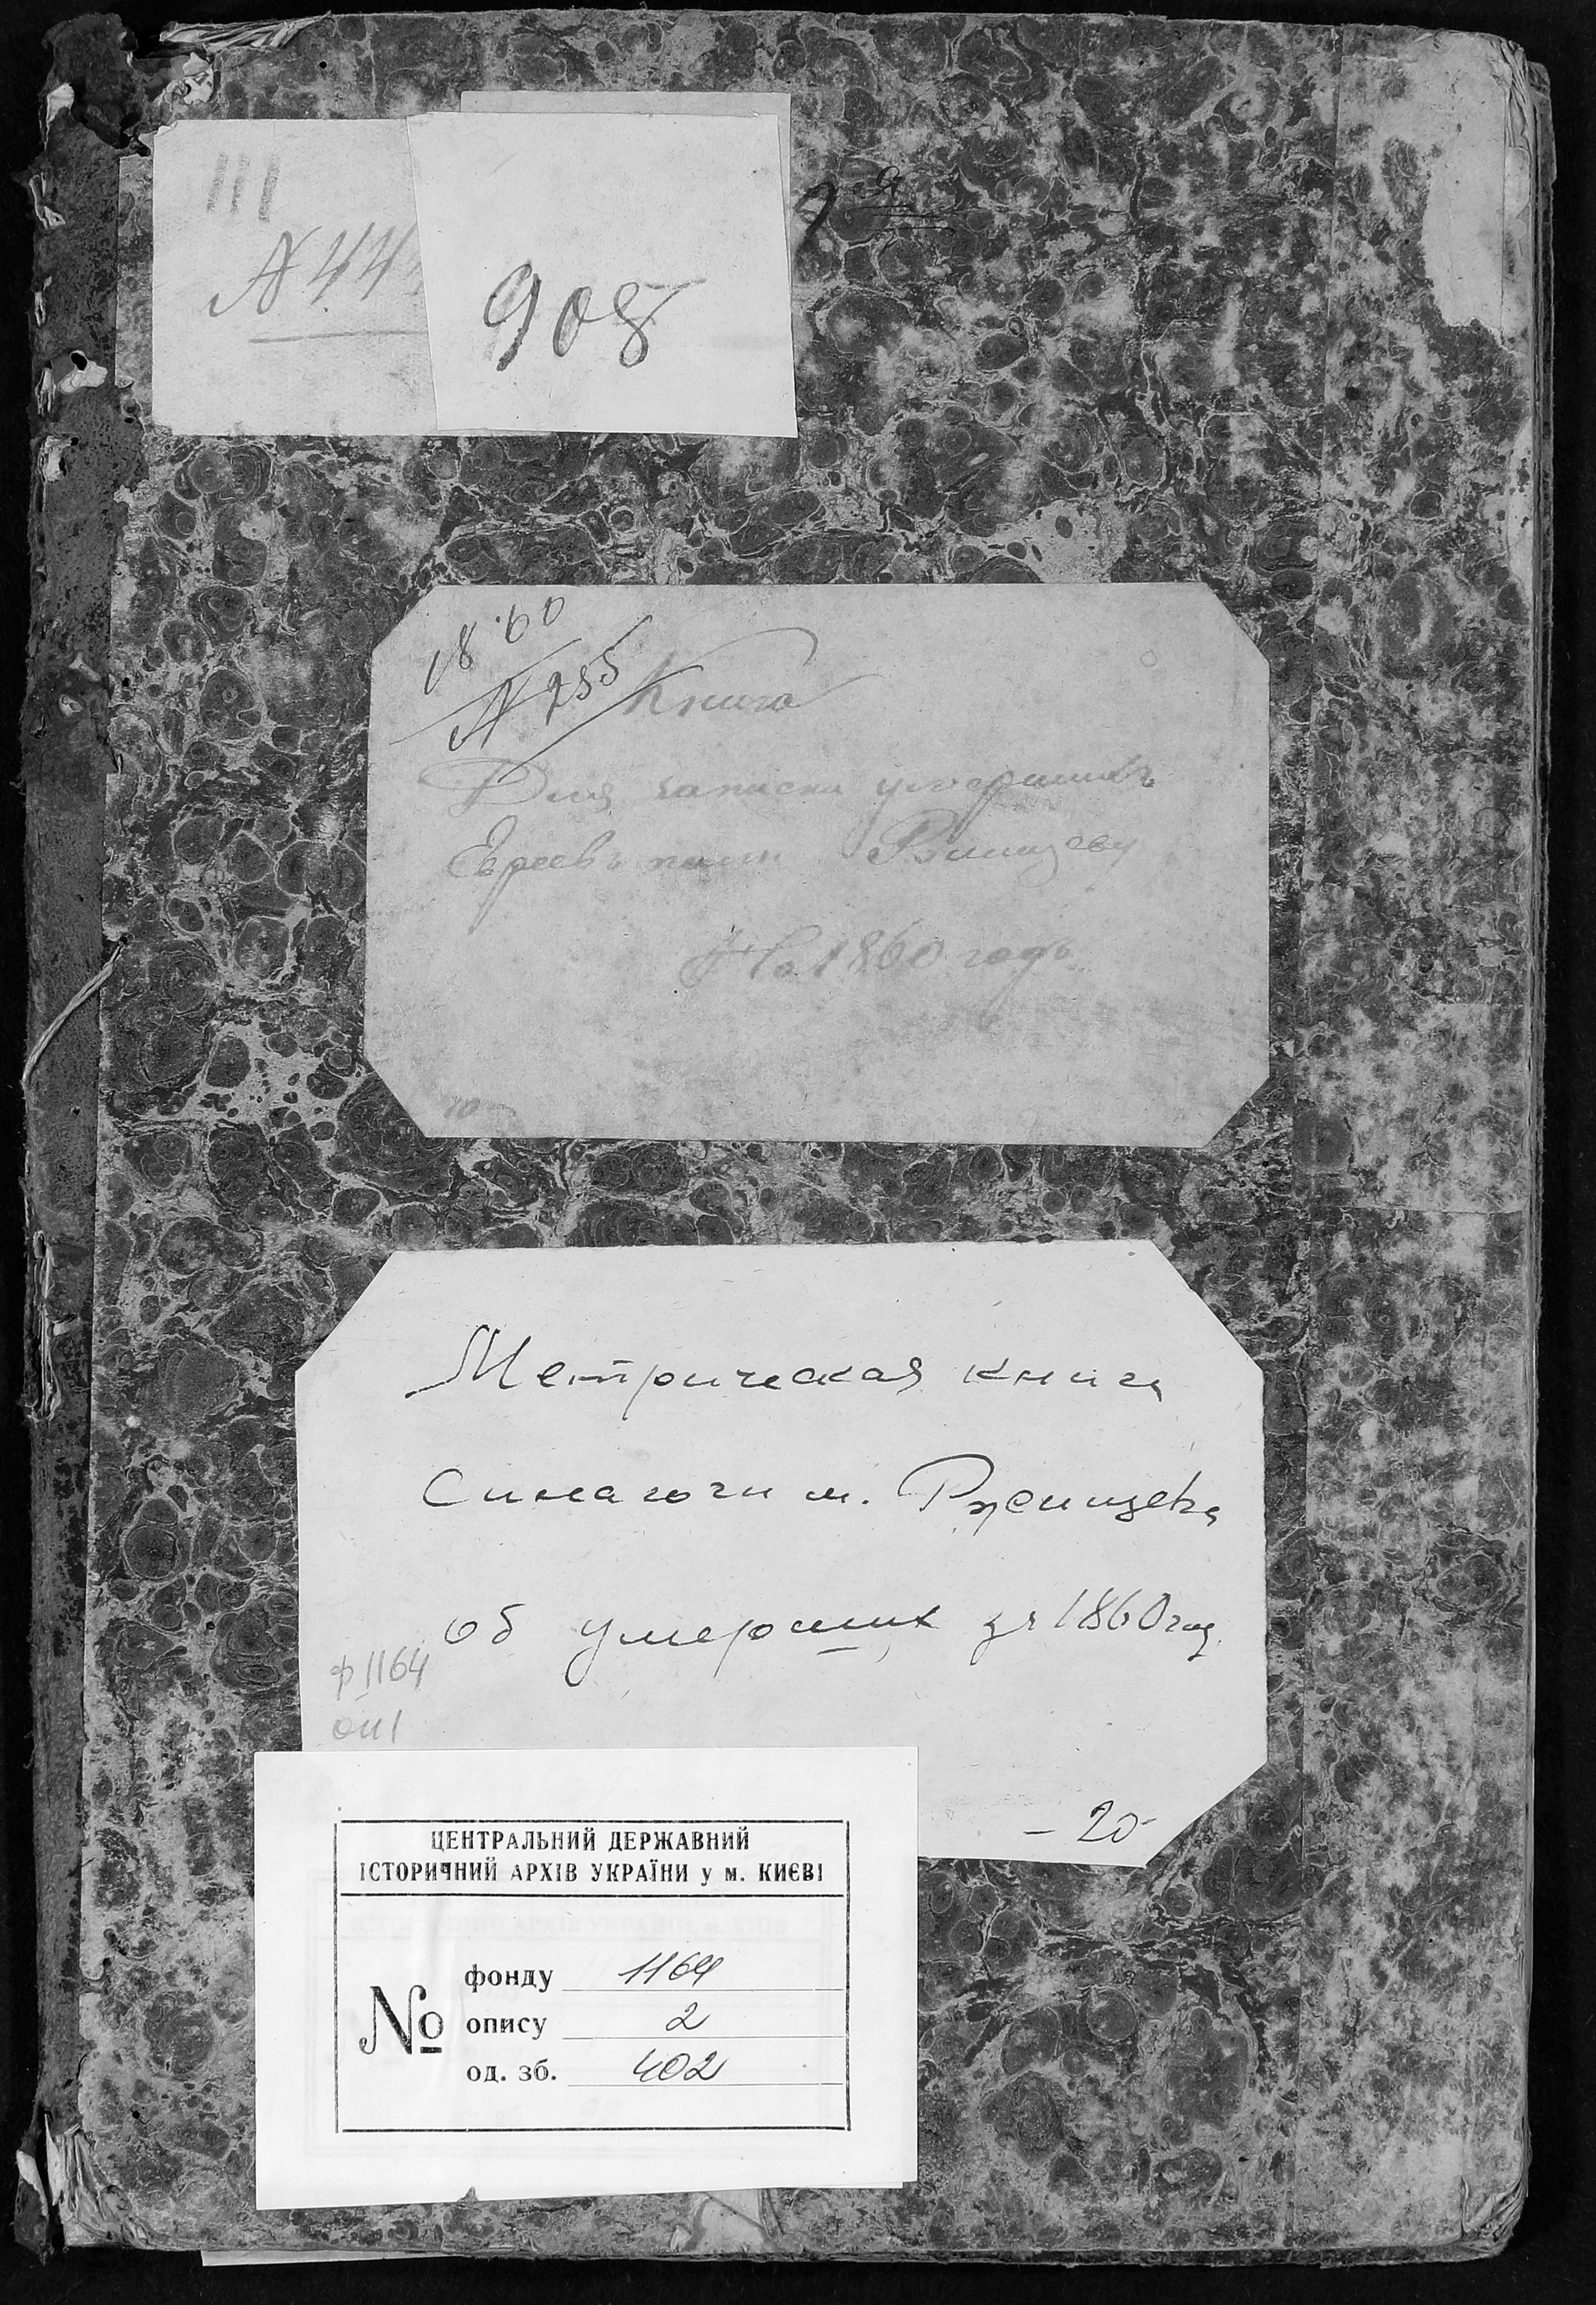 III
№ 44
908
1860
№ 255
Книга
Для записки умершихъ
Евреевъ Ржищеву
На 1860 годъ
Метрическая книга
Синагоги м. Ржищева
об умерших за 1860 год.
ф 1164
оп 1
– 20
ЦЕНТРАЛЬНИЙ ДЕРЖАВНИЙ
ІСТОРИЧНИЙ АРХІВ УКРАЇНИ у м. КИЄВІ
№
фонду 1164
опису 2
од. зб. 402